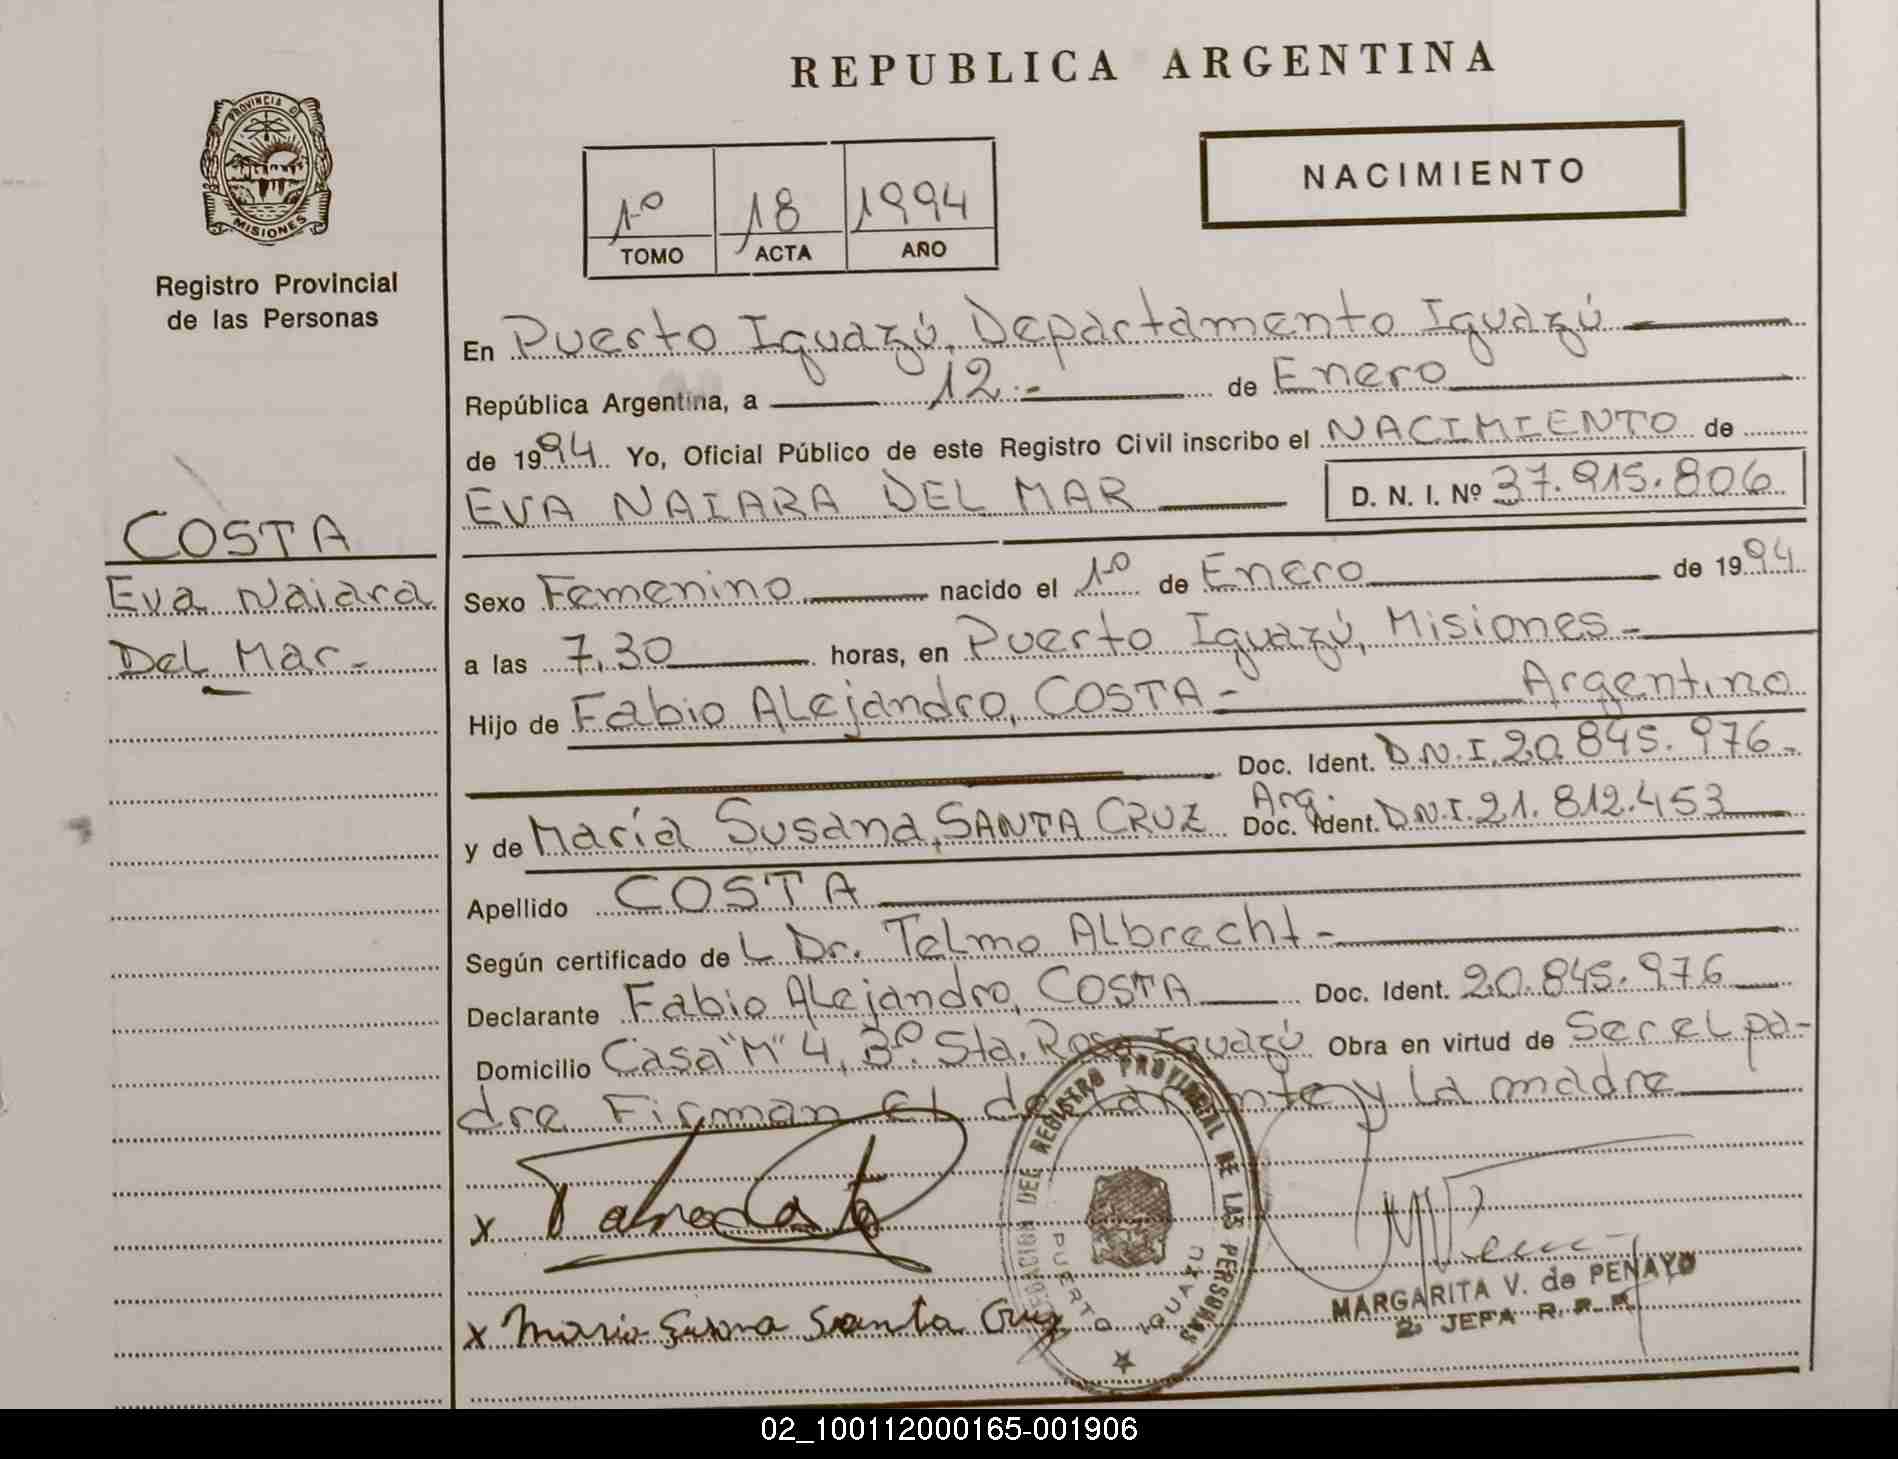 REPUBLICA ARGENTINA
PROVINCIA DE
MISIONES
Registro Provincial
de las Personas
1º 18 1994
TOMO ACTA AÑO
NACIMIENTO
COSTA
Eva Naiara
Del Mar.-
En Puerto Iguazú, Departamento Iguazú
República Argentina, a 12.- de Enero
de 1994. Yo, Oficial Público de este Registro Civil inscribo el NACIMIENTO de
EVA NAIARA DEL MAR D. N. I. Nº 37.915.806
Sexo Femenino nacido el 1º de Enero de 1994
a las 7,30 horas, en Puerto Iguazú, Misiones.-
Hijo de Fabio Alejandro, COSTA - Argentino
Doc. Ident. D.N.I. 20.845.976-
y de María Susana, SANTA CRUZ Arg. Doc. Ident. D.N.I. 21.812.453
Apellido COSTA
Según certificado de L Dr. Telmo Albrecht.-
Declarante Fabio Alejandro, COSTA Doc. Ident. 20.845.976
Domicilio Casa "M" 4, Bº. Sta. Rosa Iguazú Obra en virtud de Ser el pa-
dre Firman el declarante y la madre
x
x Maria Susana Santa Cruz
DEL REGISTRO PROVINCIAL DE LAS PERSONAS
PUERTO IGUAZU
MARGARITA V. de PENAYO
2. JEFA R. P.
02_100112000165-001906